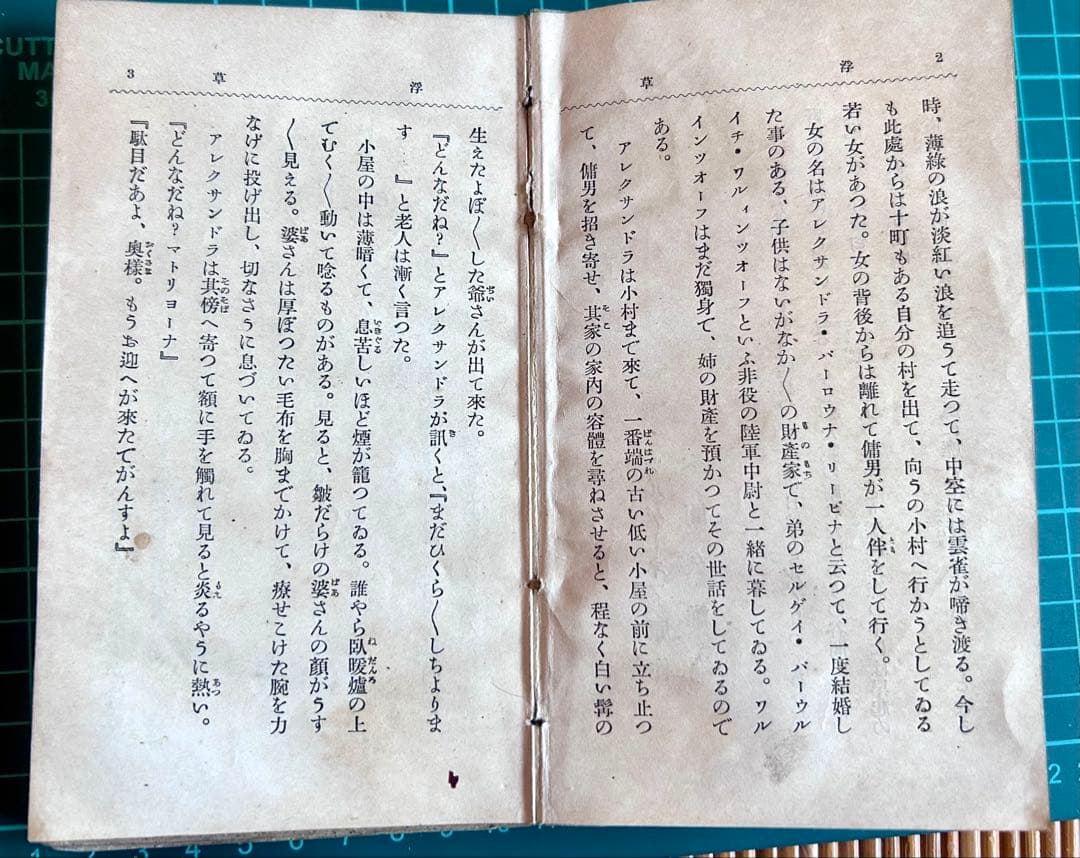 2
浮草
時、薄綠の浪が淡紅い浪を追うて走つて、中空には雲雀が啼き渡る。今し
も此處からは十町もある自分の村を出て、向うの小村へ行かうとしてゐる
若い女があつた。女の背後からは離れて傭男が一人伴をして行く。
女の名はアレクサンドラ・バーロウナ・リーピナと云つて、一度結婚し
た事のある、子供はないがなか〱の財產家で、弟のセルゲイ・バーウル
イチ・ワルィンツオーフといふ非役の陸軍中尉と一緒に暮してゐる。ワル
インツオーフはまだ獨身で、姉の財產を預かつてその世話をしてゐるので
ある。
アレクサンドラは小村まで來て、一番端の古い低い小屋の前に立ち止つ
て、傭男を招き寄せ、其家の家內の容體を尋ねさせると、程なく白い髯の
浮草
3
生えたよぼ〱した爺さんが出て來た。
『どんなだね?』とアレクサンドラが訊くと、『まだひくら〱しちよりま
す 』と老人は漸く言つた。
小屋の中は薄暗くて、息苦しいほど煙が籠つてゐる。誰やら臥暖爐の上
でむく〱動いて唸るものがある。見ると、皺だらけの婆さんの顏がうす
〱見える。婆さんは厚ぼつたい毛布を胸までかけて、瘠せこけた腕を力
なげに投げ出し、切なさうに息づいてゐる。
アレクサンドラは其傍へ寄つて額に手を觸れて見ると炎るやうに熱い。
『どんなだね?マトリヨーナ』
『駄目だあよ、奧樣。もうお迎へが來たでがんすよ』
CUTT
MA
3